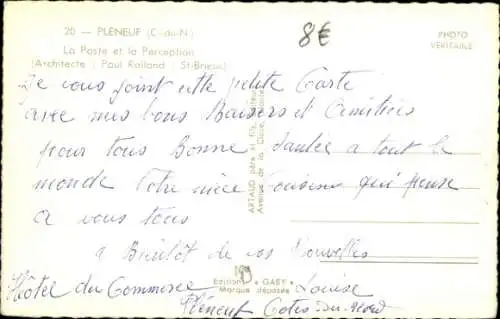 20 — PLÉNEUF (C.-du-N.)
La Poste et la Perception
(Architecte : Paul Rolland - St-Brieuc)
8€
PHOTO
VÉRITABLE
Je vous joint cette petite Carte
avec mes bons Baisers et Amitiées
pour tous Bonne Santée a tout le
monde Votre nièce Cousine qui pense
a vous tous
a Bientôt de vos Nouvelles
Louise
Hôtel du Commerce
Pléneuf Cotes-du-Nord
ARTAUD père et fils, Éditeurs
Avenue de la Close
Editions « GABY »
Marque déposée